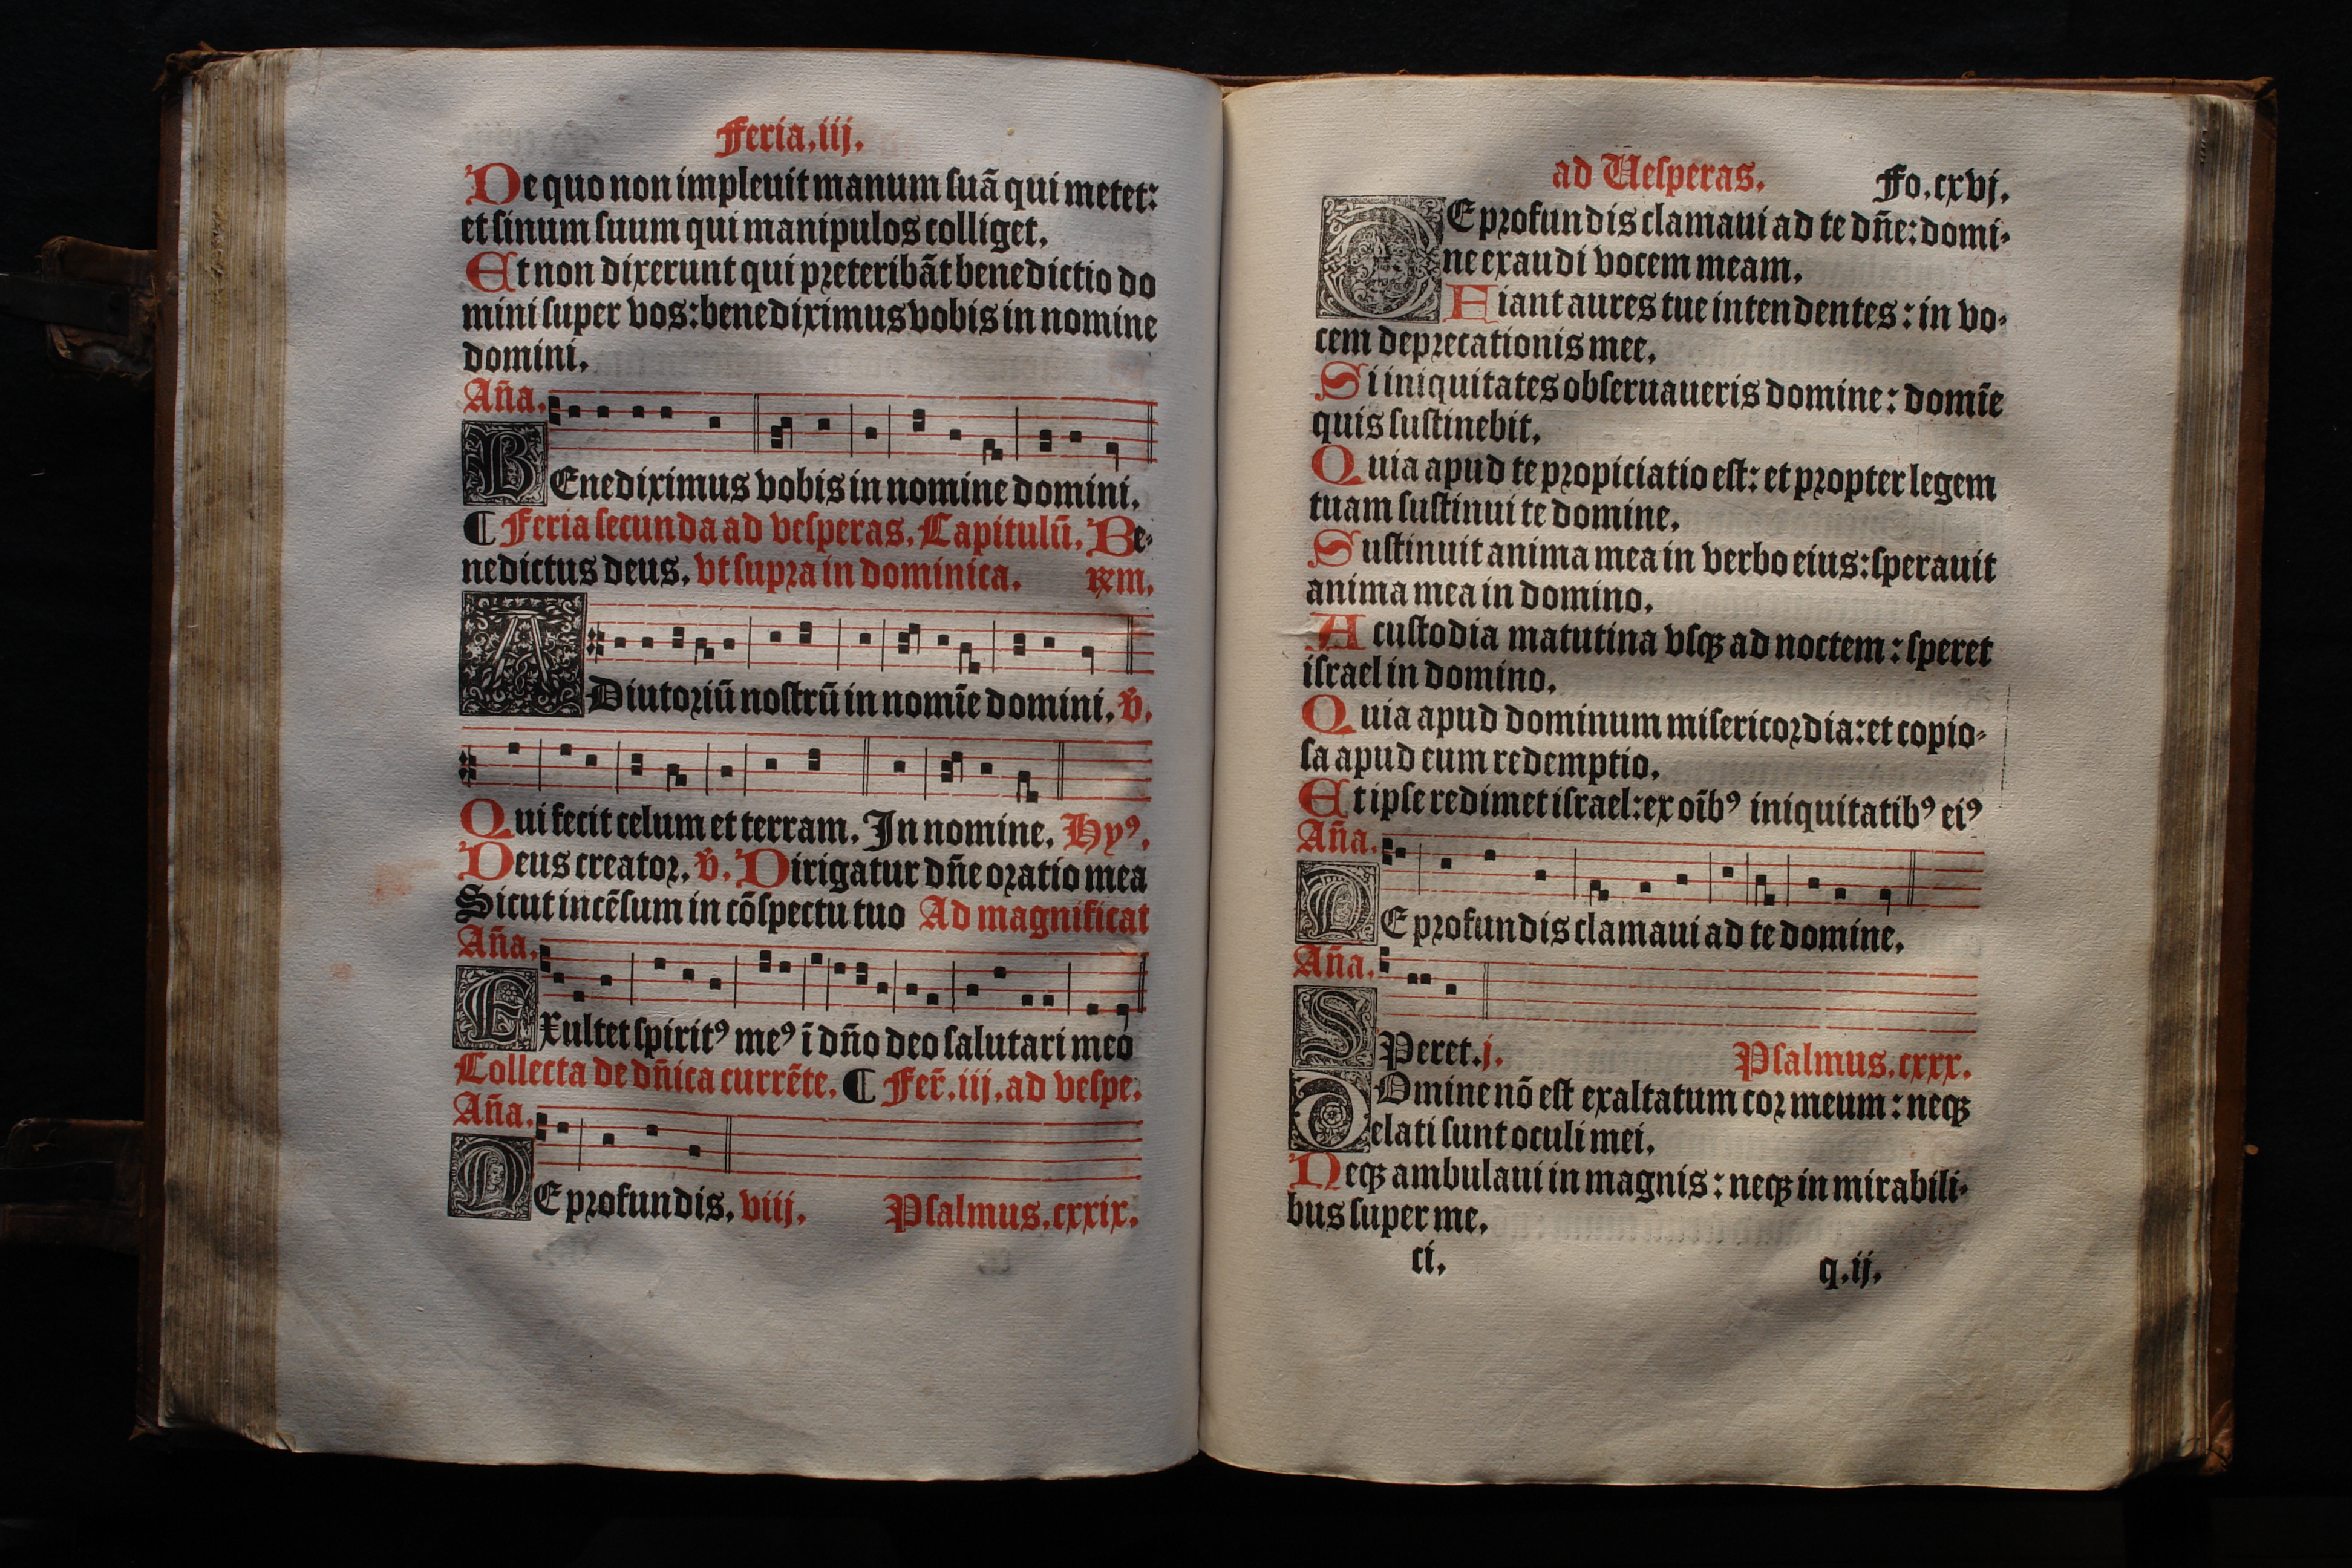 Feria.iij.
De quo non impleuit manum suã qui metet:
et sinum suum qui manipulos colliget.
Et non dixerunt qui preteribãt benedictio do
mini super vos: benediximus vobis in nomine
domini.
Aña.
BEnediximus vobis in nomine domini.
¶ Feria secunda ad vesperas. Capitulũ. Be-
nedictus deus. vt supra in dominica. ℞m.
ADiutoriũ nostrũ in nomĩe domini. ṽ.
Qui fecit celum et terram. In nomine. Hyꝰ.
Deus creator. ṽ. Dirigatur dñe oratio mea
Sicut incẽsum in cõspectu tuo Ad magnificat
Aña.
EXultet spiritꝰ meꝰ ĩ dño deo salutari meo
Collecta de dñica currẽte. ¶ Fer̃.iij.ad vespe.
Aña.
DE profundis. viij. Psalmus.cxxix.
ad Uesperas. Fo.cxvj.
DE profundis clamaui ad te dñe: domi-
ne exaudi vocem meam.
Fiant aures tue intendentes: in vo-
cem deprecationis mee.
Si iniquitates obseruaueris domine: domĩe
quis sustinebit.
Quia apud te propiciatio est: et propter legem
tuam sustinui te domine.
Sustinuit anima mea in verbo eius: sperauit
anima mea in domino.
A custodia matutina vsqꝫ ad noctem: speret
israel in domino.
Quia apud dominum misericordia: et copio-
sa apud eum redemptio.
Et ipse redimet israel: ex oĩbꝰ iniquitatibꝰ eiꝰ
Aña.
DE profundis clamaui ad te domine.
Aña.
SPeret. j. Psalmus.cxxx.
DOmine nõ est exaltatum cor meum: neqꝫ
elati sunt oculi mei.
Neqꝫ ambulaui in magnis: neqꝫ in mirabili-
bus super me.
ci. q.ij.